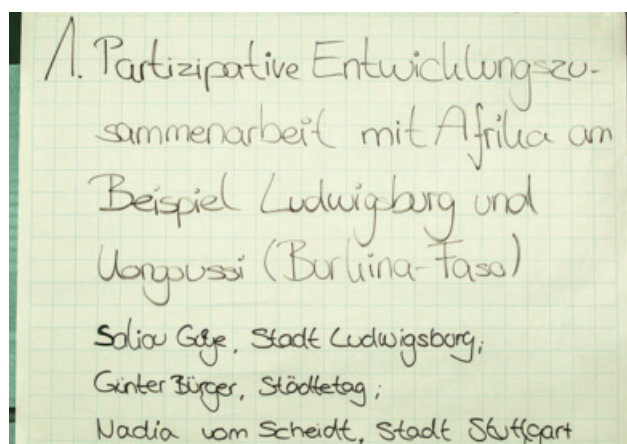 1. Partizipative Entwicklungszu-
sammenarbeit mit Afrika am
Beispiel Ludwigsburg und
Kongoussi (Burkina-Faso)
Saliou Gueye, Stadt Ludwigsburg;
Günter Bürger, Städtetag;
Nadia vom Scheidt, Stadt Stuttgart